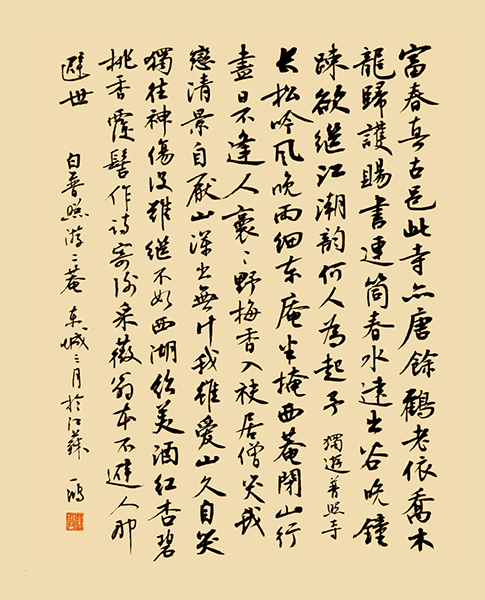 富春真古邑此寺亦唐餘鶴老依喬木
龍歸護賜書連筒春水遠出谷晚鐘
疎欲繼江潮韵何人為起予 獨遊普照寺
長松吟風晚雨細東庵半掩西菴閉山行
盡日不逢人裛〻野梅香入袂居僧笑我
戀清景自厭山深出無計我雖愛山久自笑
獨往神傷後難繼不如西湖飲美酒紅杏碧
桃香覆髻作詩寄謝采薇翁本不避人那
避世
自普照游二菴 東城二月於江蘇 鴻